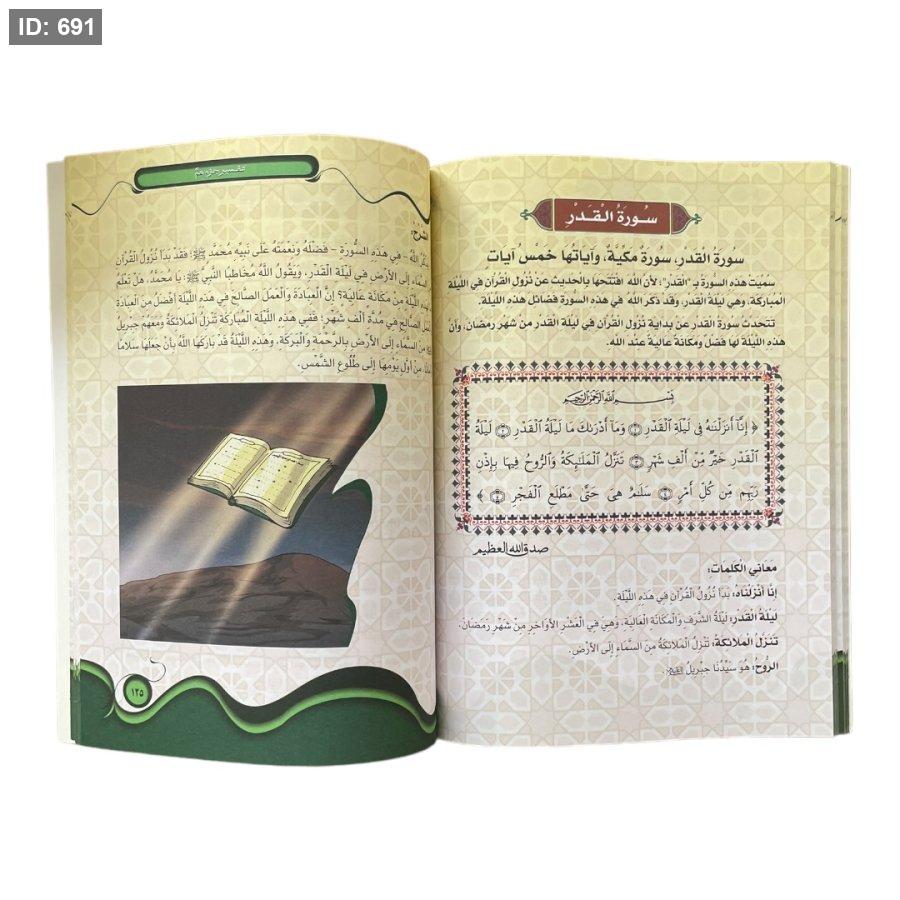 ID: 691
سُورَةُ الْقَدْرِ
سُورَةُ الْقَدْرِ، سُورَةٌ مَكِّيَّةٌ، وَآيَاتُهَا خَمْسُ آيَاتٍ
سُمِّيَتْ هذه السورة بـ "القدر"؛ لأن الله افتتحها بالحديث عن نزول القرآن في الليلة
المباركة، وهي ليلة القدر، وقد ذكر الله في هذه السورة فضائل هذه الليلة.
تتحدث سورة القدر عن بداية نزول القرآن في ليلة القدر من شهر رمضان، وأن
هذه الليلة لها فضل ومكانة عالية عند الله.
بِسْمِ اللَّهِ الرَّحْمَٰنِ الرَّحِيمِ
﴿ إِنَّا أَنزَلْنَاهُ فِي لَيْلَةِ الْقَدْرِ ۝١ وَمَا أَدْرَاكَ مَا لَيْلَةُ الْقَدْرِ ۝٢ لَيْلَةُ
الْقَدْرِ خَيْرٌ مِّنْ أَلْفِ شَهْرٍ ۝٣ تَنَزَّلُ الْمَلَائِكَةُ وَالرُّوحُ فِيهَا بِإِذْنِ
رَبِّهِم مِّن كُلِّ أَمْرٍ ۝٤ سَلَامٌ هِيَ حَتَّىٰ مَطْلَعِ الْفَجْرِ ۝٥ ﴾
صدق الله العظيم
معاني الكلمات:
إنا أنزلناه: بدأ نزول القرآن في هذه الليلة.
ليلة القدر: ليلة الشرف والمكانة العالية، وهي في العشر الأواخر من شهر رمضان.
تنزل الملائكة: تنزل الملائكة من السماء إلى الأرض.
الروح: هو سيدنا جبريل
تفسير جزء عم
الشرح:
الله - في هذه السورة - فضله ونعمته على نبيه محمد ﷺ؛ فقد بدأ نزول القرآن
السماء إلى الأرض في ليلة القدر، ويقول الله مخاطبا النبي ﷺ: يا محمد، هل تعلم
هذه الليلة من مكانة عالية؟ إن العبادة والعمل الصالح في هذه الليلة أفضل من العبادة
الصالح في مدة ألف شهر؛ ففي هذه الليلة المباركة تنزل الملائكة ومعهم جبريل
من السماء إلى الأرض بالرحمة والبركة، وهذه الليلة قد باركها الله بأن جعلها سلاما
من أول يومها إلى طلوع الشمس.
١٢٥